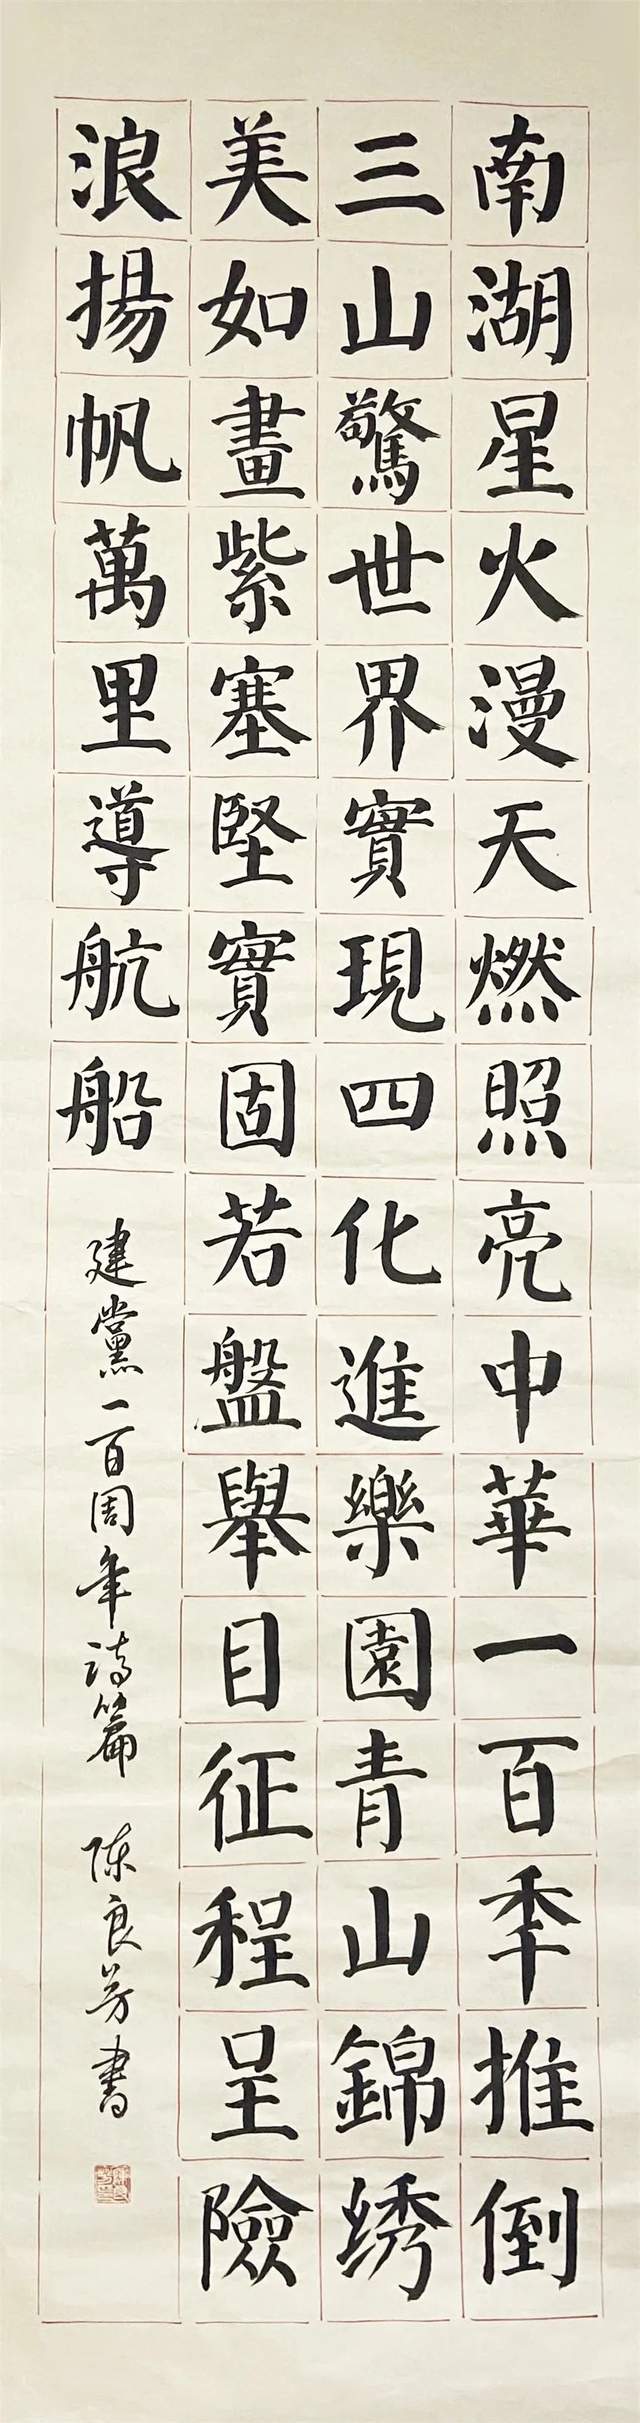 南湖星火漫天燃照亮中華一百秊推倒
三山驚世界實現四化進樂園青山錦绣
美如畫紫塞堅實固若盤舉目征程呈險
浪揚帆萬里導航船
建黨一百周年詩篇 陈良芳書